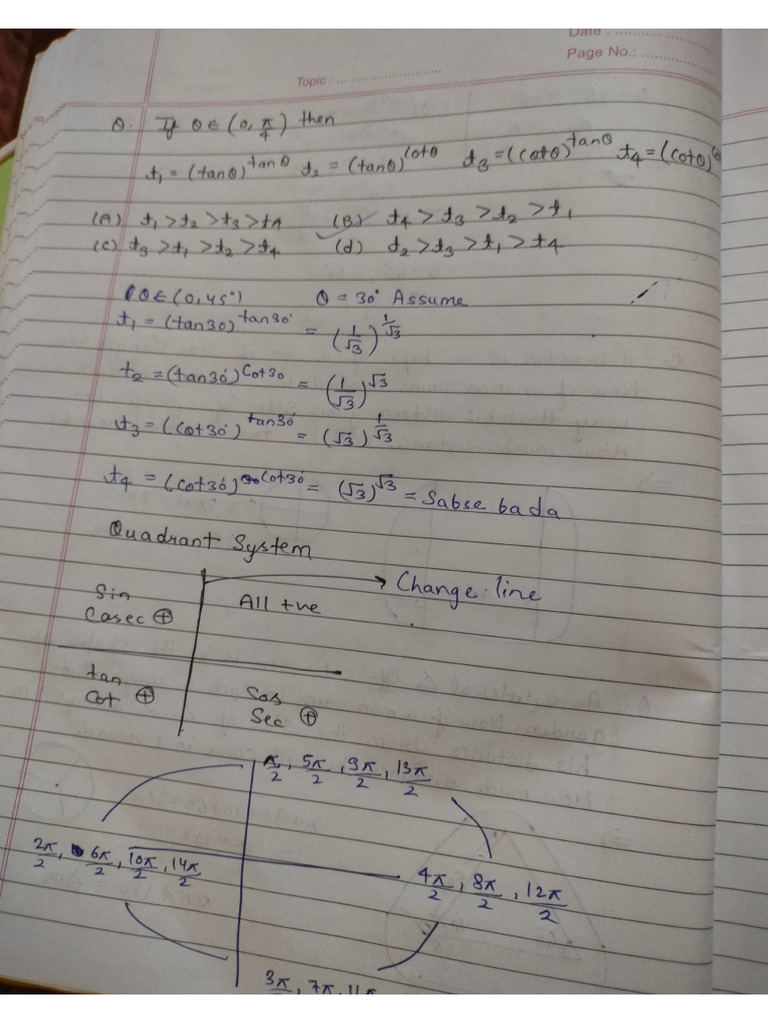 Date : ..................
Page No.: ..................
Topic : ..............................
Q. If θ ∈ (0, π/4) then
t₁ = (tanθ)^tanθ t₂ = (tanθ)^cotθ t₃ = (cotθ)^tanθ t₄ = (cotθ)^
(A) t₁ > t₂ > t₃ > t₄ (B) t₄ > t₃ > t₂ > t₁
(C) t₃ > t₁ > t₂ > t₄ (d) t₂ > t₃ > t₁ > t₄
θ ∈ (0, 45°) θ = 30° Assume
t₁ = (tan30)^tan30° = (1/√3)^1/√3
t₂ = (tan30°)^Cot30 = (1/√3)^√3
t₃ = (cot30°)^tan30° = (√3)^1/√3
t₄ = (cot30°)^cot30° = (√3)^√3 = Sabse bada
Quadrant System
Change line
Sin
Casec ⊕
All +ve
tan
Cot ⊕
Cos
Sec ⊕
π/2, 5π/2, 9π/2, 13π/2
2π/2, 6π/2, 10π/2, 14π/2
4π/2, 8π/2, 12π/2
3π/2, 7π, 11π